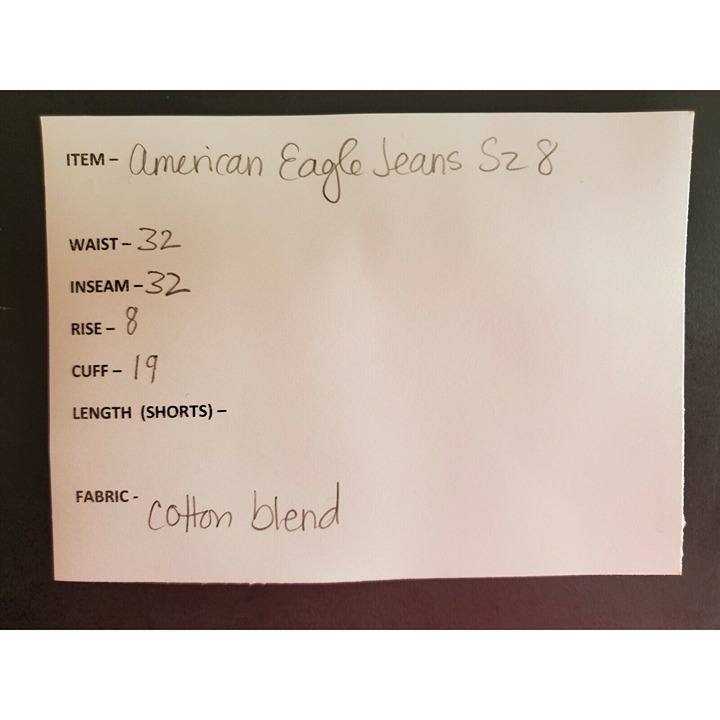 ITEM – American Eagle Jeans Sz 8
WAIST – 32
INSEAM – 32
RISE – 8
CUFF – 19
LENGTH (SHORTS) –
FABRIC - cotton blend